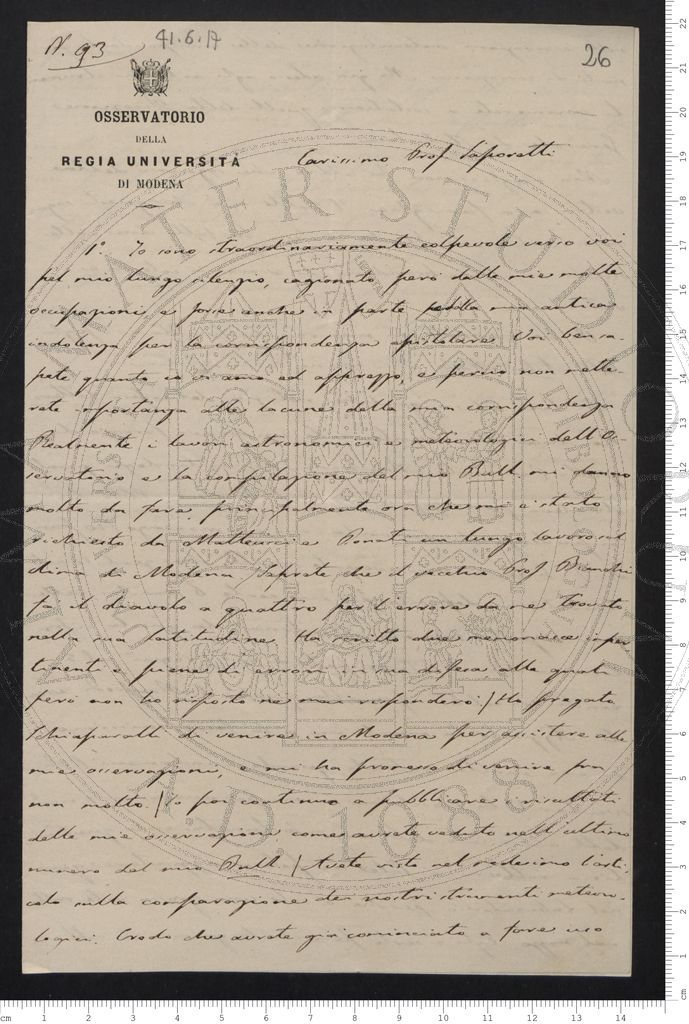 N. 93
41.6.17
26
OSSERVATORIO
DELLA
REGIA UNIVERSITÀ
DI MODENA
Carissimo Prof Saporetti
1.° Io sono straordinariamente colpevole verso voi
pel mio lungo silenzio, cagionato però dalle mie molte
occupazioni e forse anche in parte dalla mia antica
indolenza per la corrispondenza epistolare Voi ben sa-
pete quanto io vi amo ed apprezzo, e perciò non mette-
rete importanza alle lacune della mia corrispondenza
Realmente i lavori astronomici e meteorologici dell'Os-
servatorio e la compilazione del mio Bull. mi danno
molto da fare principalmente ora che mi è stato
richiesto da Matteucci e Donati un lungo lavoro sul
clima di Modena Saprete che il vecchio Prof. Bianchi
fa il diavolo a quattro per l'errore da me trovato
nella sua latitudine. Ha scritto due memoriacce imper
tinenti e piene di errori in sua difesa alle quali
però non ho risposto ne mai risponderò / Ho pregato
Schiaparelli di venire in Modena per assistere alle
mie osservazioni, e mi ha promesso di venire fra
non molto. / Io poi continuo a pubblicare i risultati
delle mie osservazioni come avrete veduto nell'ultimo
numero del mio Bull / Avete visto nel medesimo l'arti-
colo sulla comparazione dei nostri strumenti meteoro-
logici. Credo che avrete già cominciato a fare uso
ALMA MATER STUDIORUM
A.D. 1088